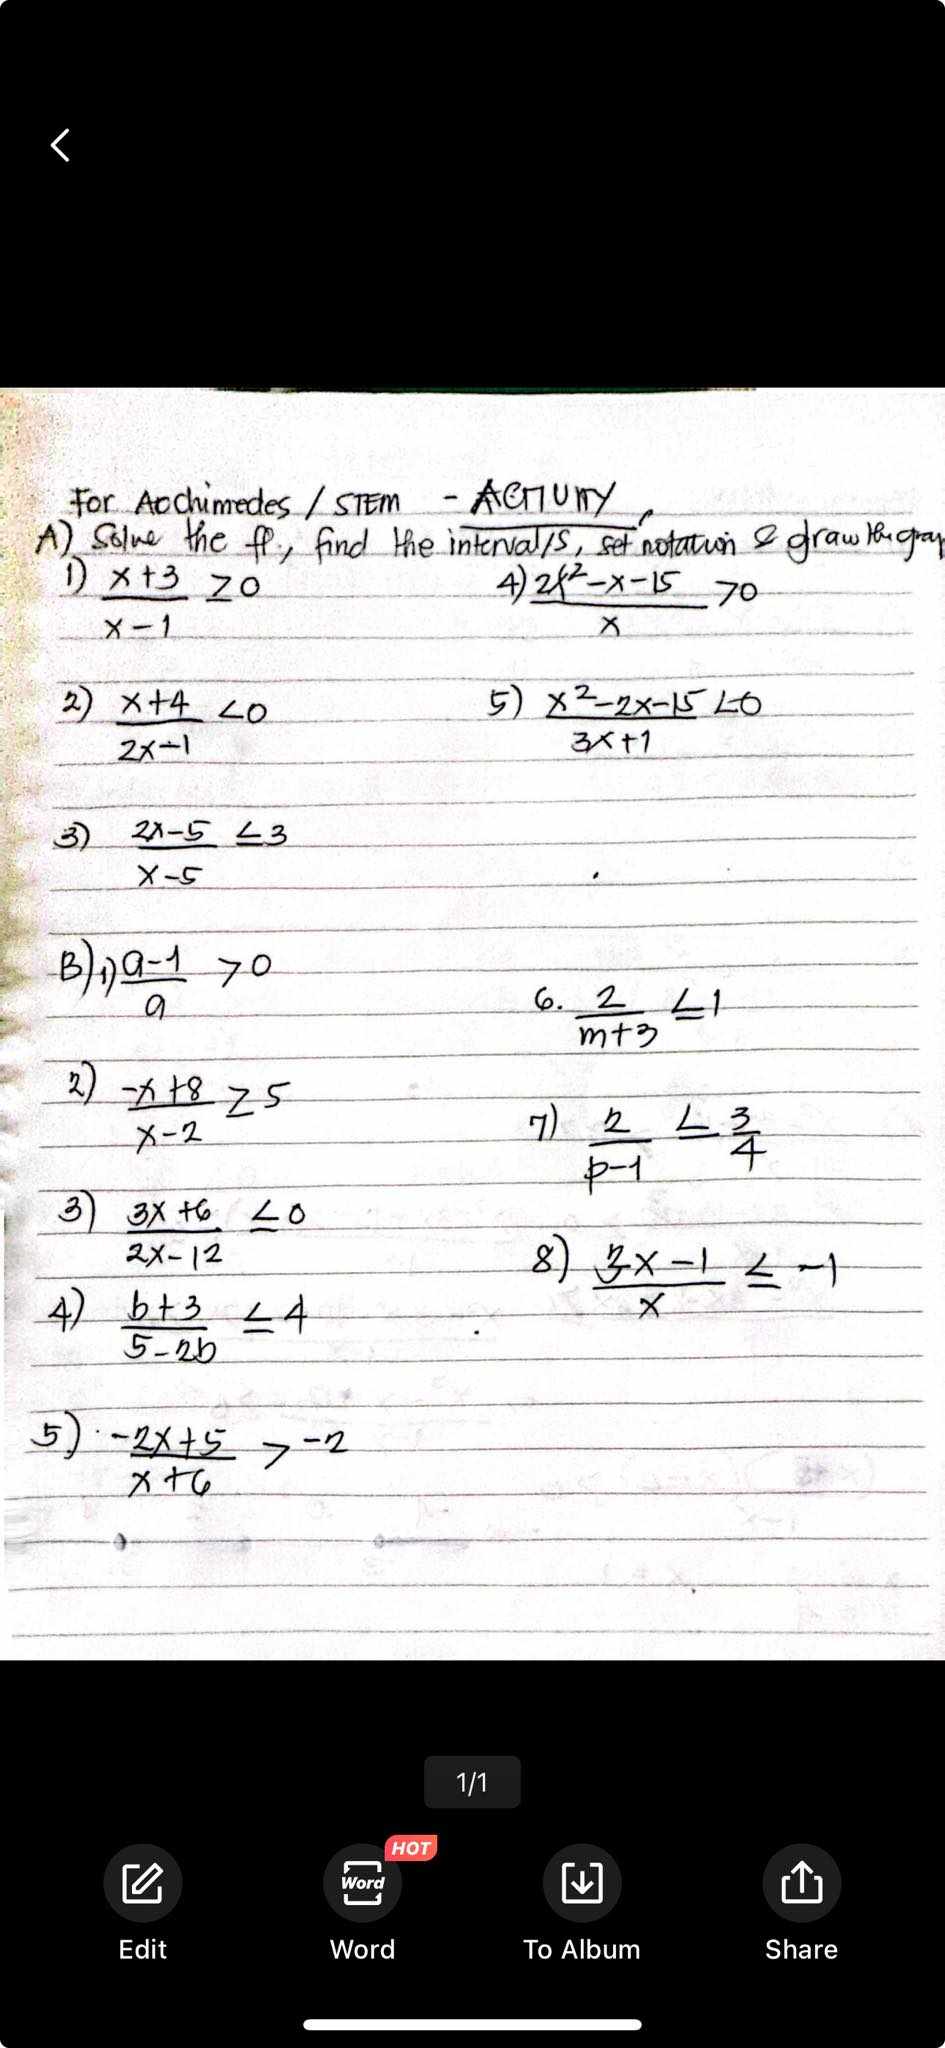 For Archimedes / STEM - ACTIVITY
A) Solve the ff., find the interval/s, set notation & draw the grap
1) x+3 ≥0
x-1
4) 2x²-x-15 >0
x
2) x+4 <0
2x-1
5) x²-2x-15 <0
3x+1
3) 2x-5 ≤3
x-5
B) 1) a-1 >0
a
6. 2 ≤1
m+3
2) -x+8 ≥5
x-2
7) 2 ≤ 3
p-1 4
3) 3x+6 ≤0
2x-12
8) x-1 ≤ -1
x
4) b+3 ≤4
5-2b
5) -2x+5 >-2
x+6
1/1
HOT
Word
Edit Word To Album Share